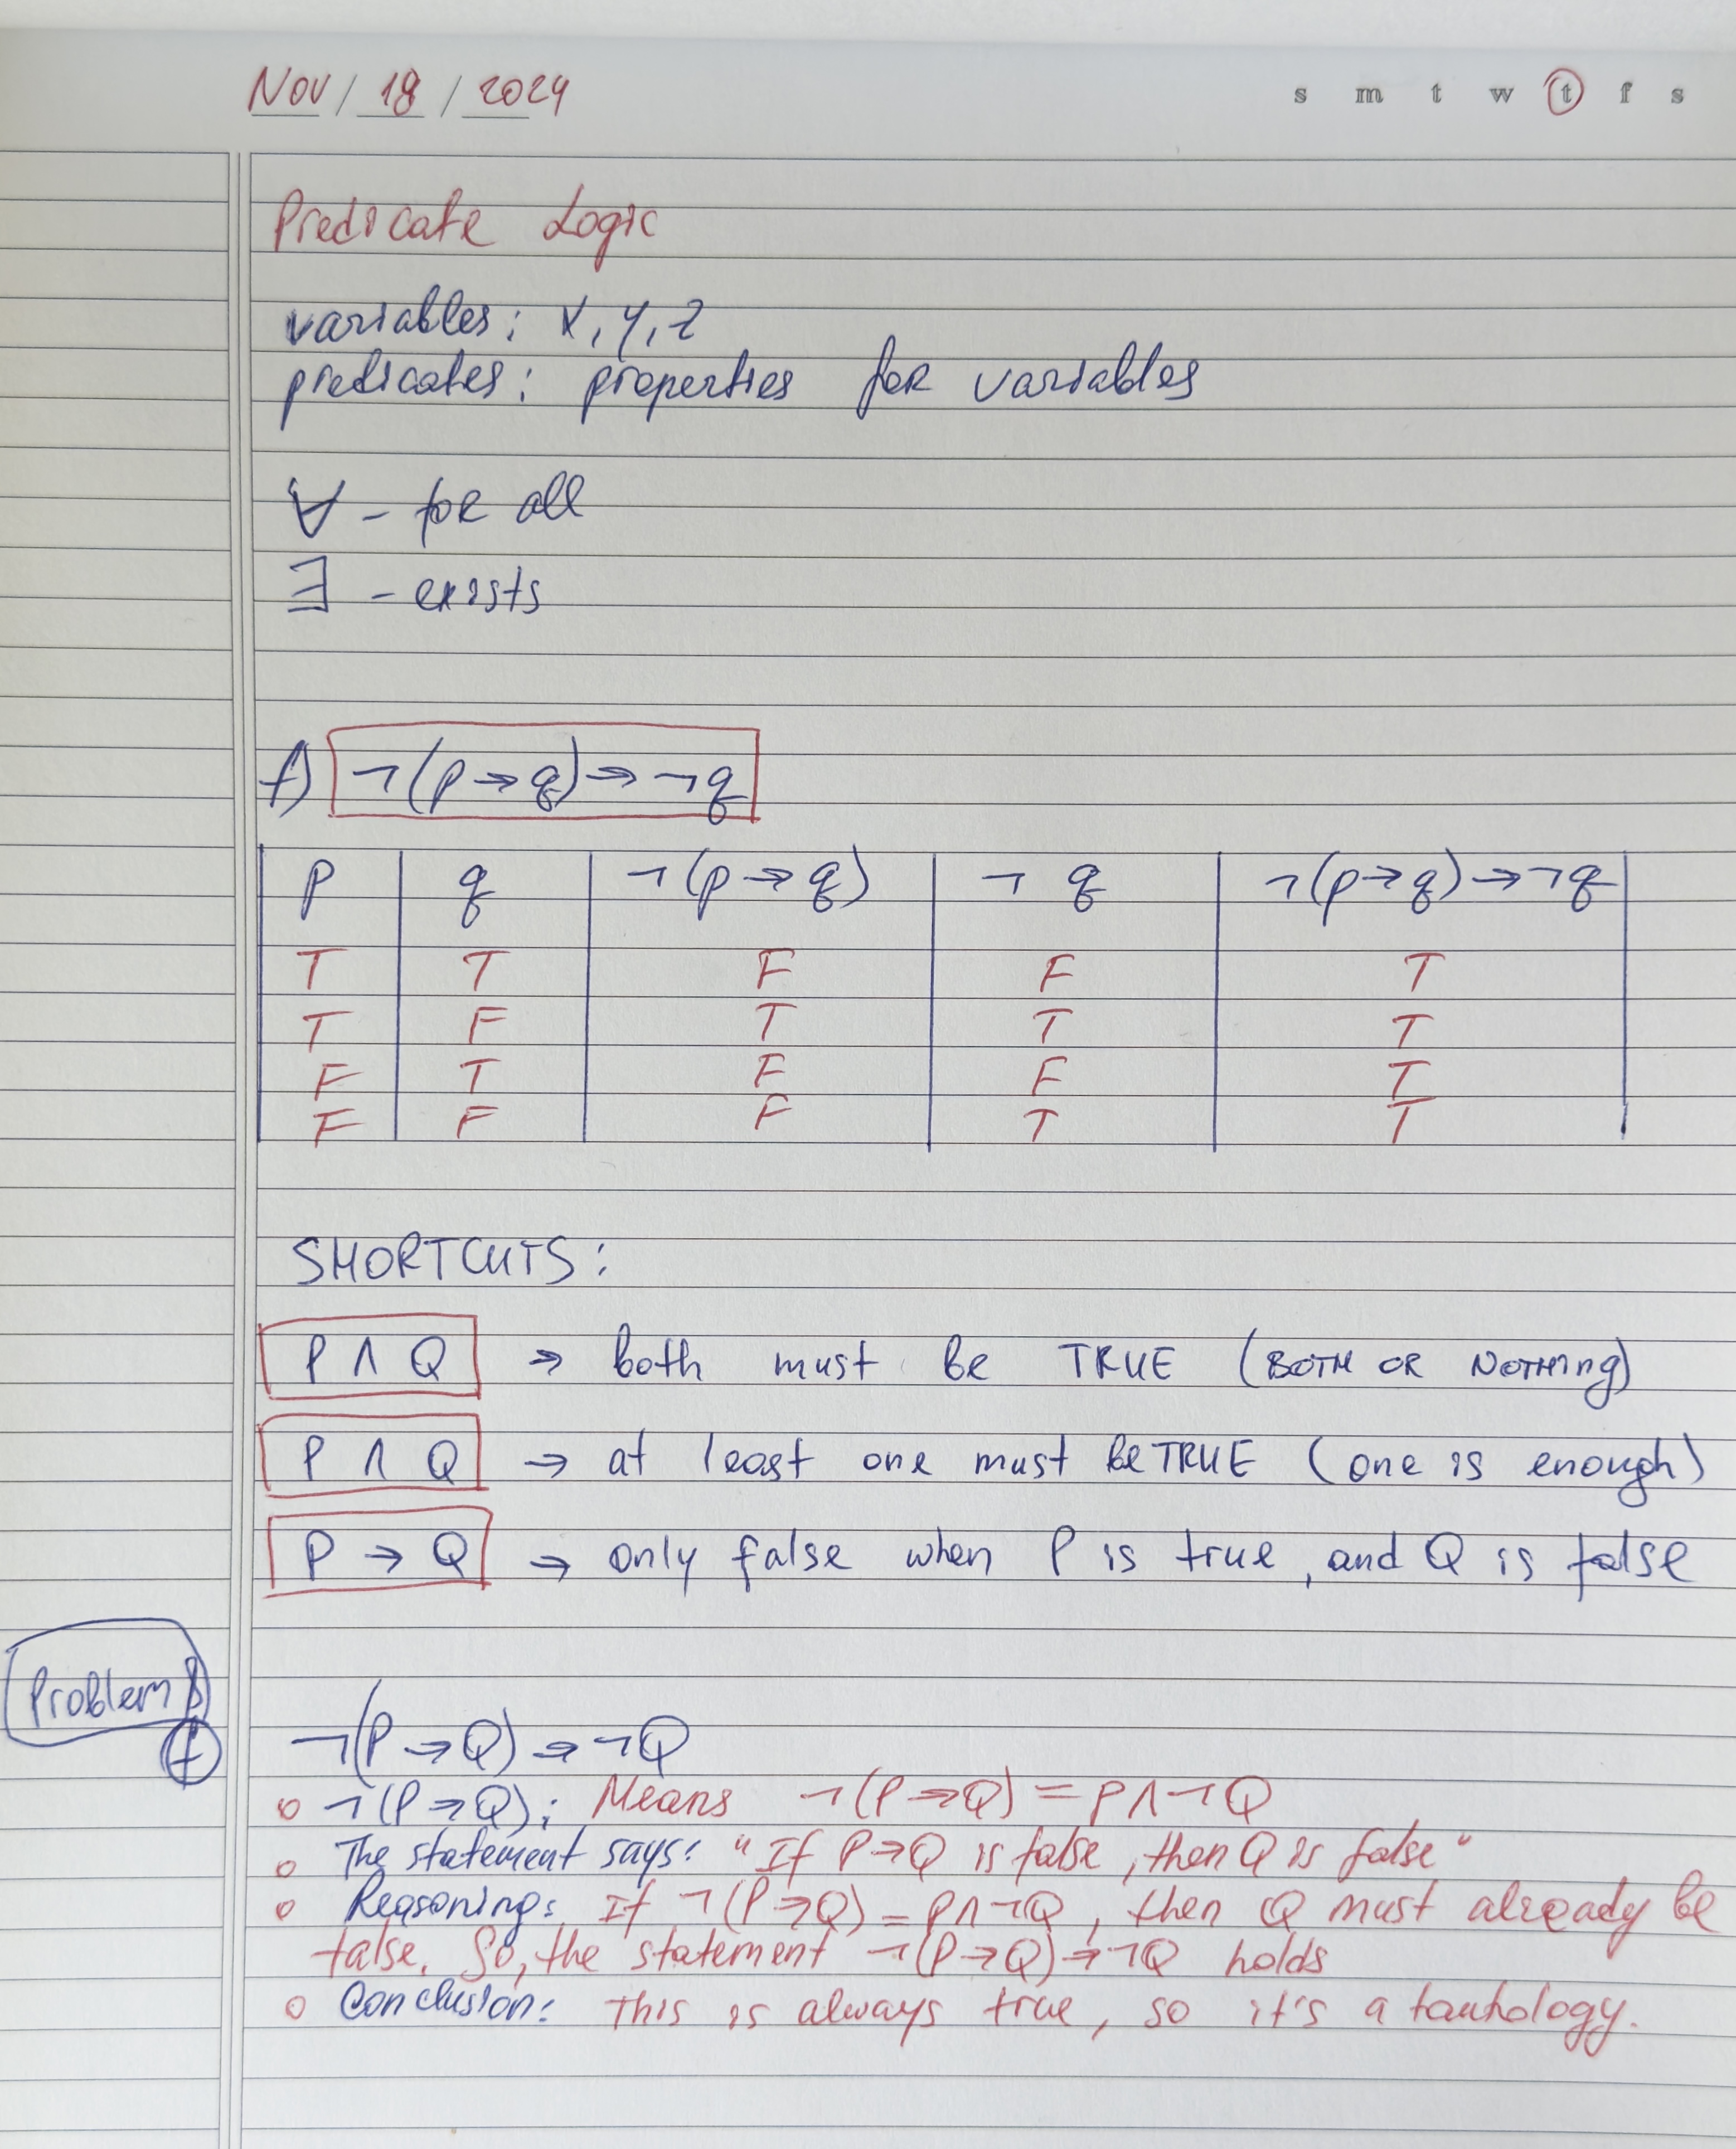 Nov / 18 / 2024 s m t w t f s
Predicate Logic
variables: x, y, z
predicates: properties for variables
∀ - for all
∃ - exists
f) ¬(p→q)→¬q
p q ¬(p→q) ¬q ¬(p→q)→¬q
T T F F T
T F T T T
F T F F T
F F F T T
SHORTCUTS:
P ∧ Q → both must be TRUE (BOTH OR NOTHing)
P ∧ Q → at least one must be TRUE (one is enough)
P → Q → only false when P is true, and Q is false
Problem 8
f ¬(P→Q)→¬Q
○ ¬(P→Q); Means ¬(P→Q) = P∧¬Q
○ The statement says: "If P→Q is false, then Q is false"
○ Reasoning: If ¬(P→Q) = P∧¬Q, then Q must already be
false. So, the statement ¬(P→Q)→¬Q holds
○ Conclusion: This is always true, so it's a tautology.